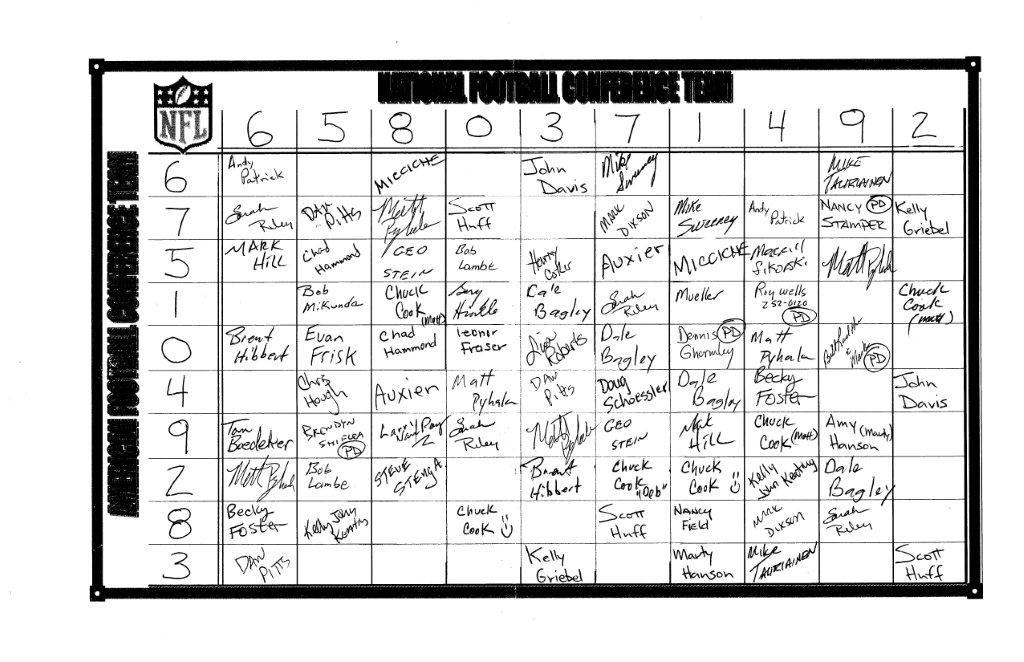 NATIONAL FOOTBALL CONFERENCE TEAM
AMERICAN FOOTBALL CONFERENCE TEAM
NFL
6 5 8 0 3 7 1 4 9 2
6
Andy Patrick
MICCICHE
John Davis
Mike Sweeney
MIKE TAURIAINEN
7
Sarah Riley
DAN Pitts
Matt Pyhala
Scott Huff
MARK DIXSON
Mike Sweeney
Andy Patrick
NANCY PD STAMPER
Kelly Griebel
5
MARK Hill
Chad Hammond
GEO STEIN
Bob Lambe
Harry
Auxier
MICCICHE
Merrill Sikorski
Matt Pyhala
1
Bob Mikunda
Chuck Cook (Matt)
Hinkle
Dale Bagley
Sarah Riley
Mueller
Roy wells 252-0120 PD
Chuck Cook (Matt)
0
Brent Hibbert
Evan Frisk
Chad Hammond
Leonir Fraser
Lisa Roberts
Dale Bagley
Dennis PD Ghormley
Matt Pyhala
PD
4
Chris Hough
Auxier
Matt Pyhala
DAN Pitts
Doug Schoessler
Dale Bagley
Becky Foster
John Davis
9
Tom Boedeker
BRENDYN SHIFLEA PD
Larri
Sarah Riley
Matt Pyhala
GEO STEIN
Mark Hill
Chuck Cook (Matt)
Amy (Marty) Hanson
2
Matt Pyhala
Bob Lambe
STEVE STENGA
Brent Hibbert
Chuck Cook "Deb"
Chuck Cook
Kelly John Keating
Dale Bagley
8
Becky Foster
Kelly John Keating
Chuck Cook
Scott Huff
Nancy Field
MARK Dixson
Sarah Riley
3
DAN Pitts
Kelly Griebel
Marty Hanson
Mike TAURIAINEN
Scott Huff